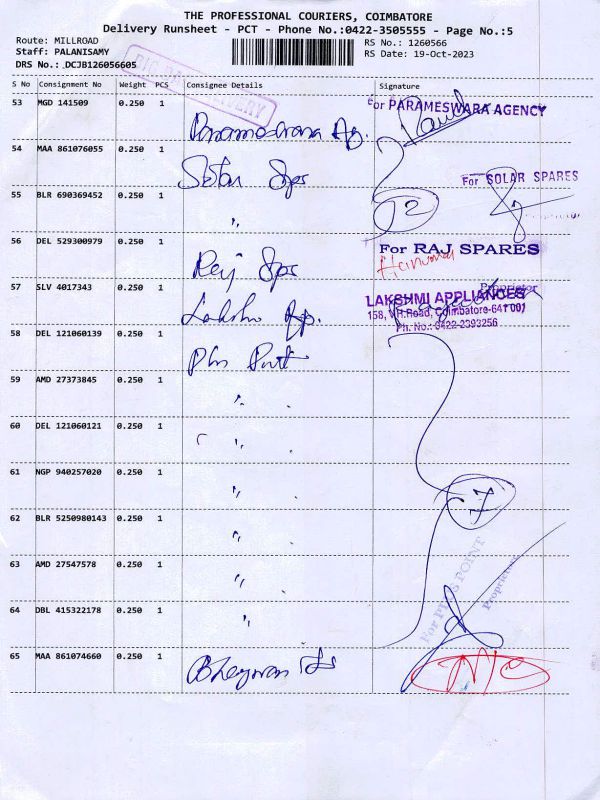 THE PROFESSIONAL COURIERS, COIMBATORE
Delivery Runsheet - PCT - Phone No.:0422-3505555 - Page No.:5
Route: MILLROAD
RS No.: 1260566
Staff: PALANISAMY
RS Date: 19-Oct-2023
DRS No.: DCJB126056605
S No Consignment No Weight PCS Consignee Details Signature
53 MGD 141509 0.250 1 Parameswara Ag. For PARAMESWARA AGENCY
54 MAA 861076055 0.250 1 Solar Spar For SOLAR SPARES
55 BLR 690369452 0.250 1 " 2
56 DEL 529300979 0.250 1 Raj Spar For RAJ SPARES
Proprietor
57 SLV 4017343 0.250 1 Lakshmi Ap. LAKSHMI APPLIANCES
158, V.H.Road, Coimbatore-641 001
Ph. No.: 0422-2393256
58 DEL 121060139 0.250 1 Plus Point
59 AMD 27373845 0.250 1 "
60 DEL 121060121 0.250 1 "
61 NGP 940257020 0.250 1 " 7
62 BLR 5250980143 0.250 1 "
63 AMD 27547578 0.250 1 " For PLUS POINT
Proprietor
64 DBL 415322178 0.250 1 "
65 MAA 861074660 0.250 1 Bhagwan